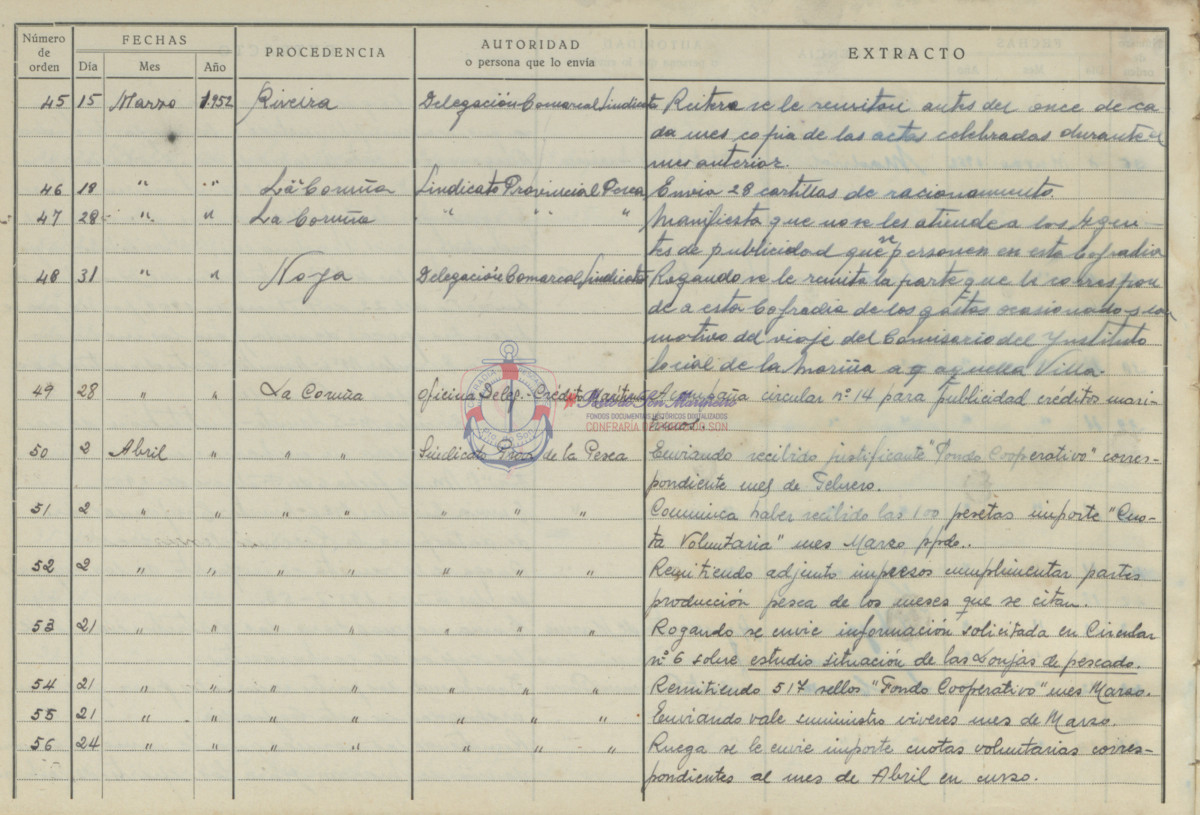 Número de orden FECHAS PROCEDENCIA AUTORIDAD o persona que lo envía EXTRACTO
Día Mes Año
45 15 Marzo 1.952 Riveira Delegación Comarcal Sindicato Reitera se le remitan antes del once de ca
da mes copia de las actas celebradas durante el
mes anterior.
46 18 " " La Coruña Sindicato Provincial Pesca Envia 28 cartillas de racionamiento.
47 28 " " La Coruña " " " Manifiesta que no se les atiende a los Agen-
tes de publicidad que se personen en esta Cofradia
48 31 " " Noya Delegación Comarcal Sindicato Rogando se le remita la parte que le correspon
de a esta Cofradia de los gastos ocasionados
motivo del viaje del Comisario del Ynstituto
Social de la Marina a aquella Villa.
49 28 " " La Coruña Oficina Deleg. Crédito Marítimo Acompaña circular nº 14 para publicidad créditos mari-
timos.
50 2 Abril " " " Sindicato Prov. de la Pesca Enviando recibido justificante "Fondo Cooperativo" corres-
pondiente mes de Febrero.
51 2 " " " " " " " Comunica haber recibido las 100 pesetas importe "Cuo-
ta Voluntaria" mes Marzo ppdo..
52 2 " " " " " " " Remitiendo adjunto impresos cumplimentar partes
producción pesca de los meses que se citan.
53 21 " " " " " " " Rogando se envie información solicitada en Circular
nº 6 sobre estudio situación de las Lonjas de pescado.
54 21 " " " " " " " Remitiendo 517 sellos "Fondo Cooperativo" mes Marzo.
55 21 " " " " " " " Enviando vale suministro viveres mes de Marzo.
56 24 " " " " " " " Ruega se le envie importe cuotas voluntarias corres-
pondientes al mes de Abril en curso.
FONDOS DOCUMENTAIS HISTÓRICOS DIXITALIZADOS
CONFRARÍA DE PORTO DO SON